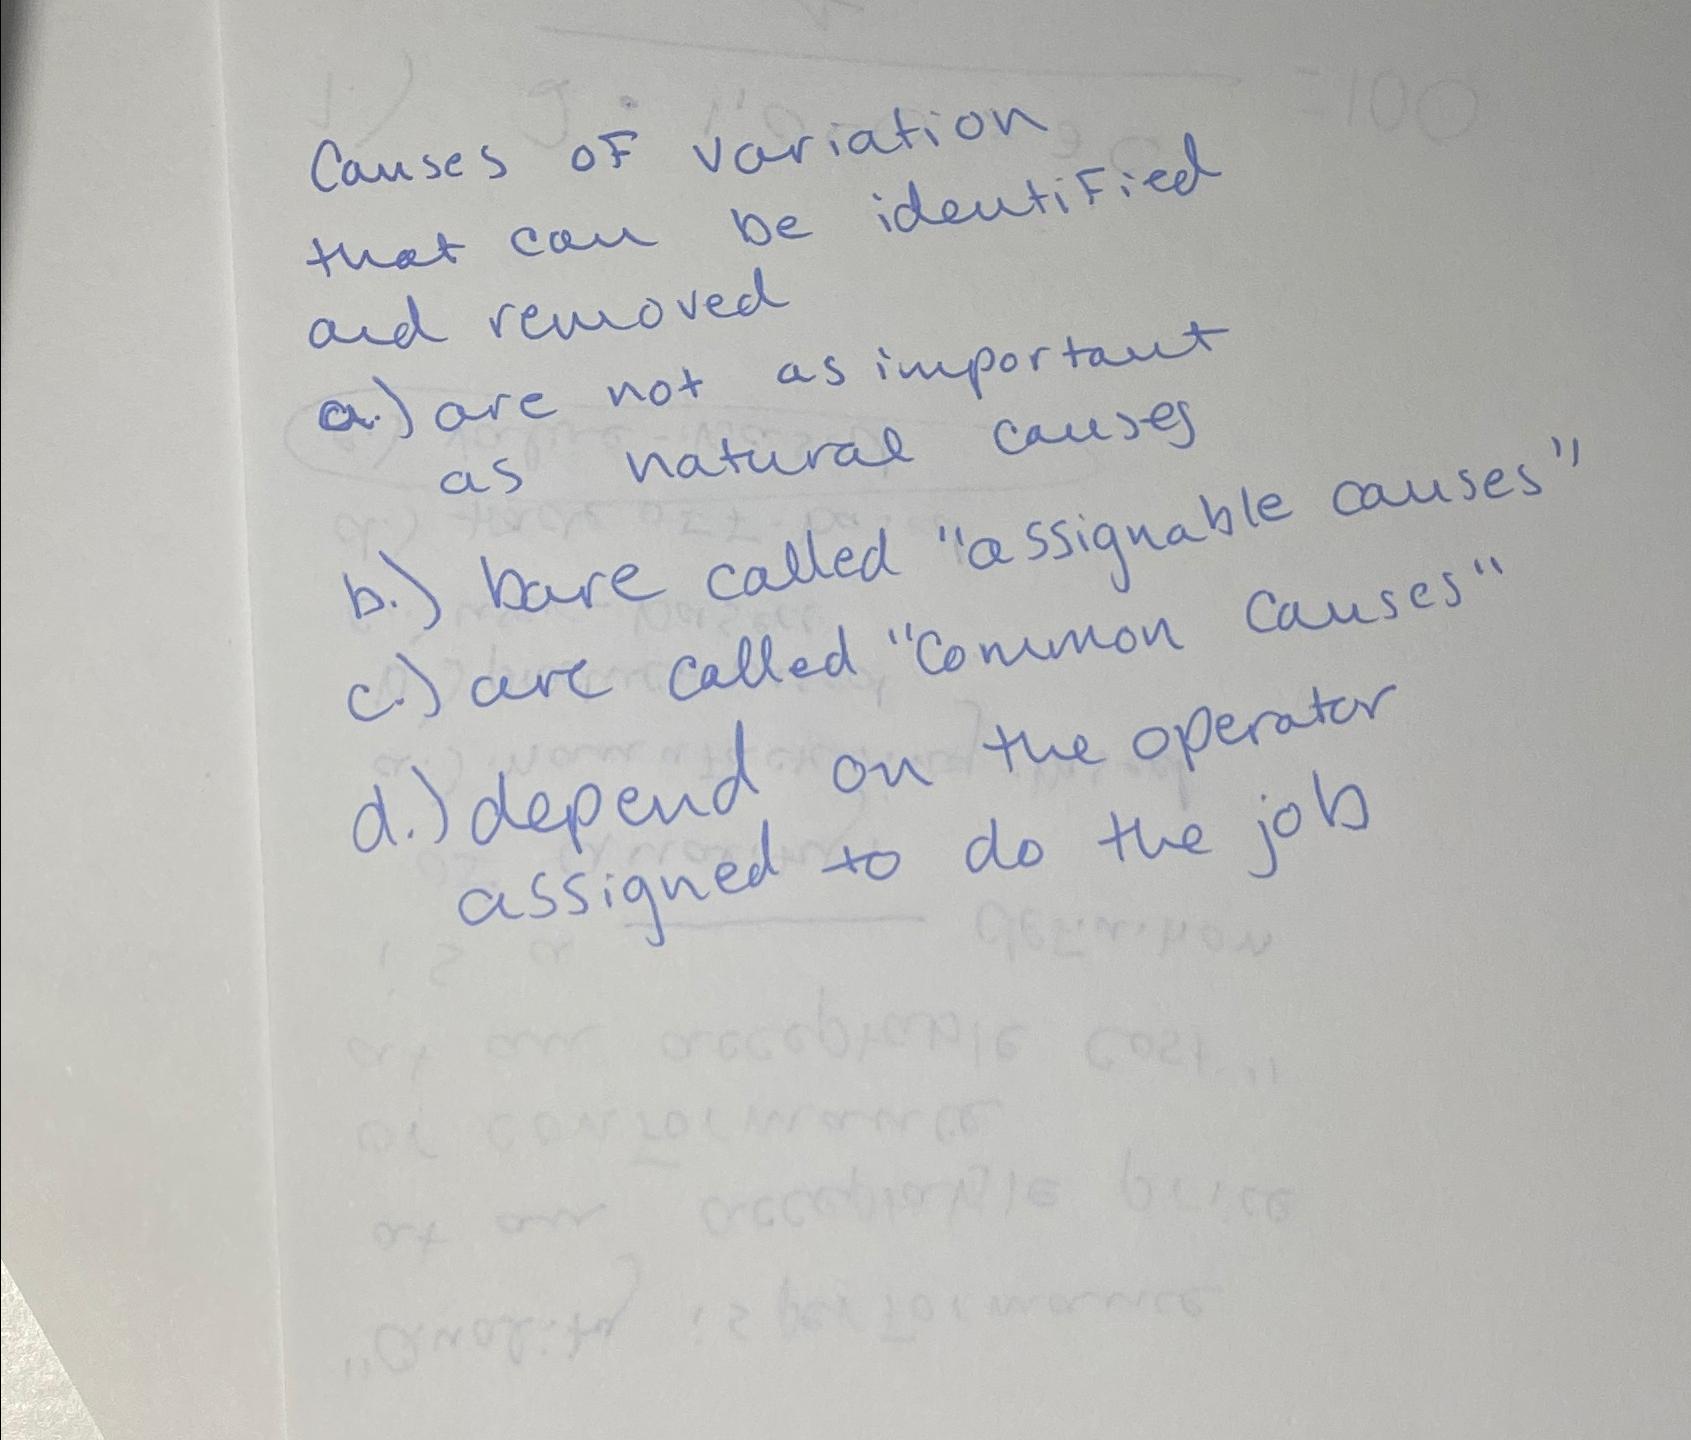 Causes of variation
that can be identified
and removed
a.) are not as important
as natural causes
b.) bare called "assignable causes"
c.) are called "Common Causes"
d.) depend on the operator
assigned to do the job